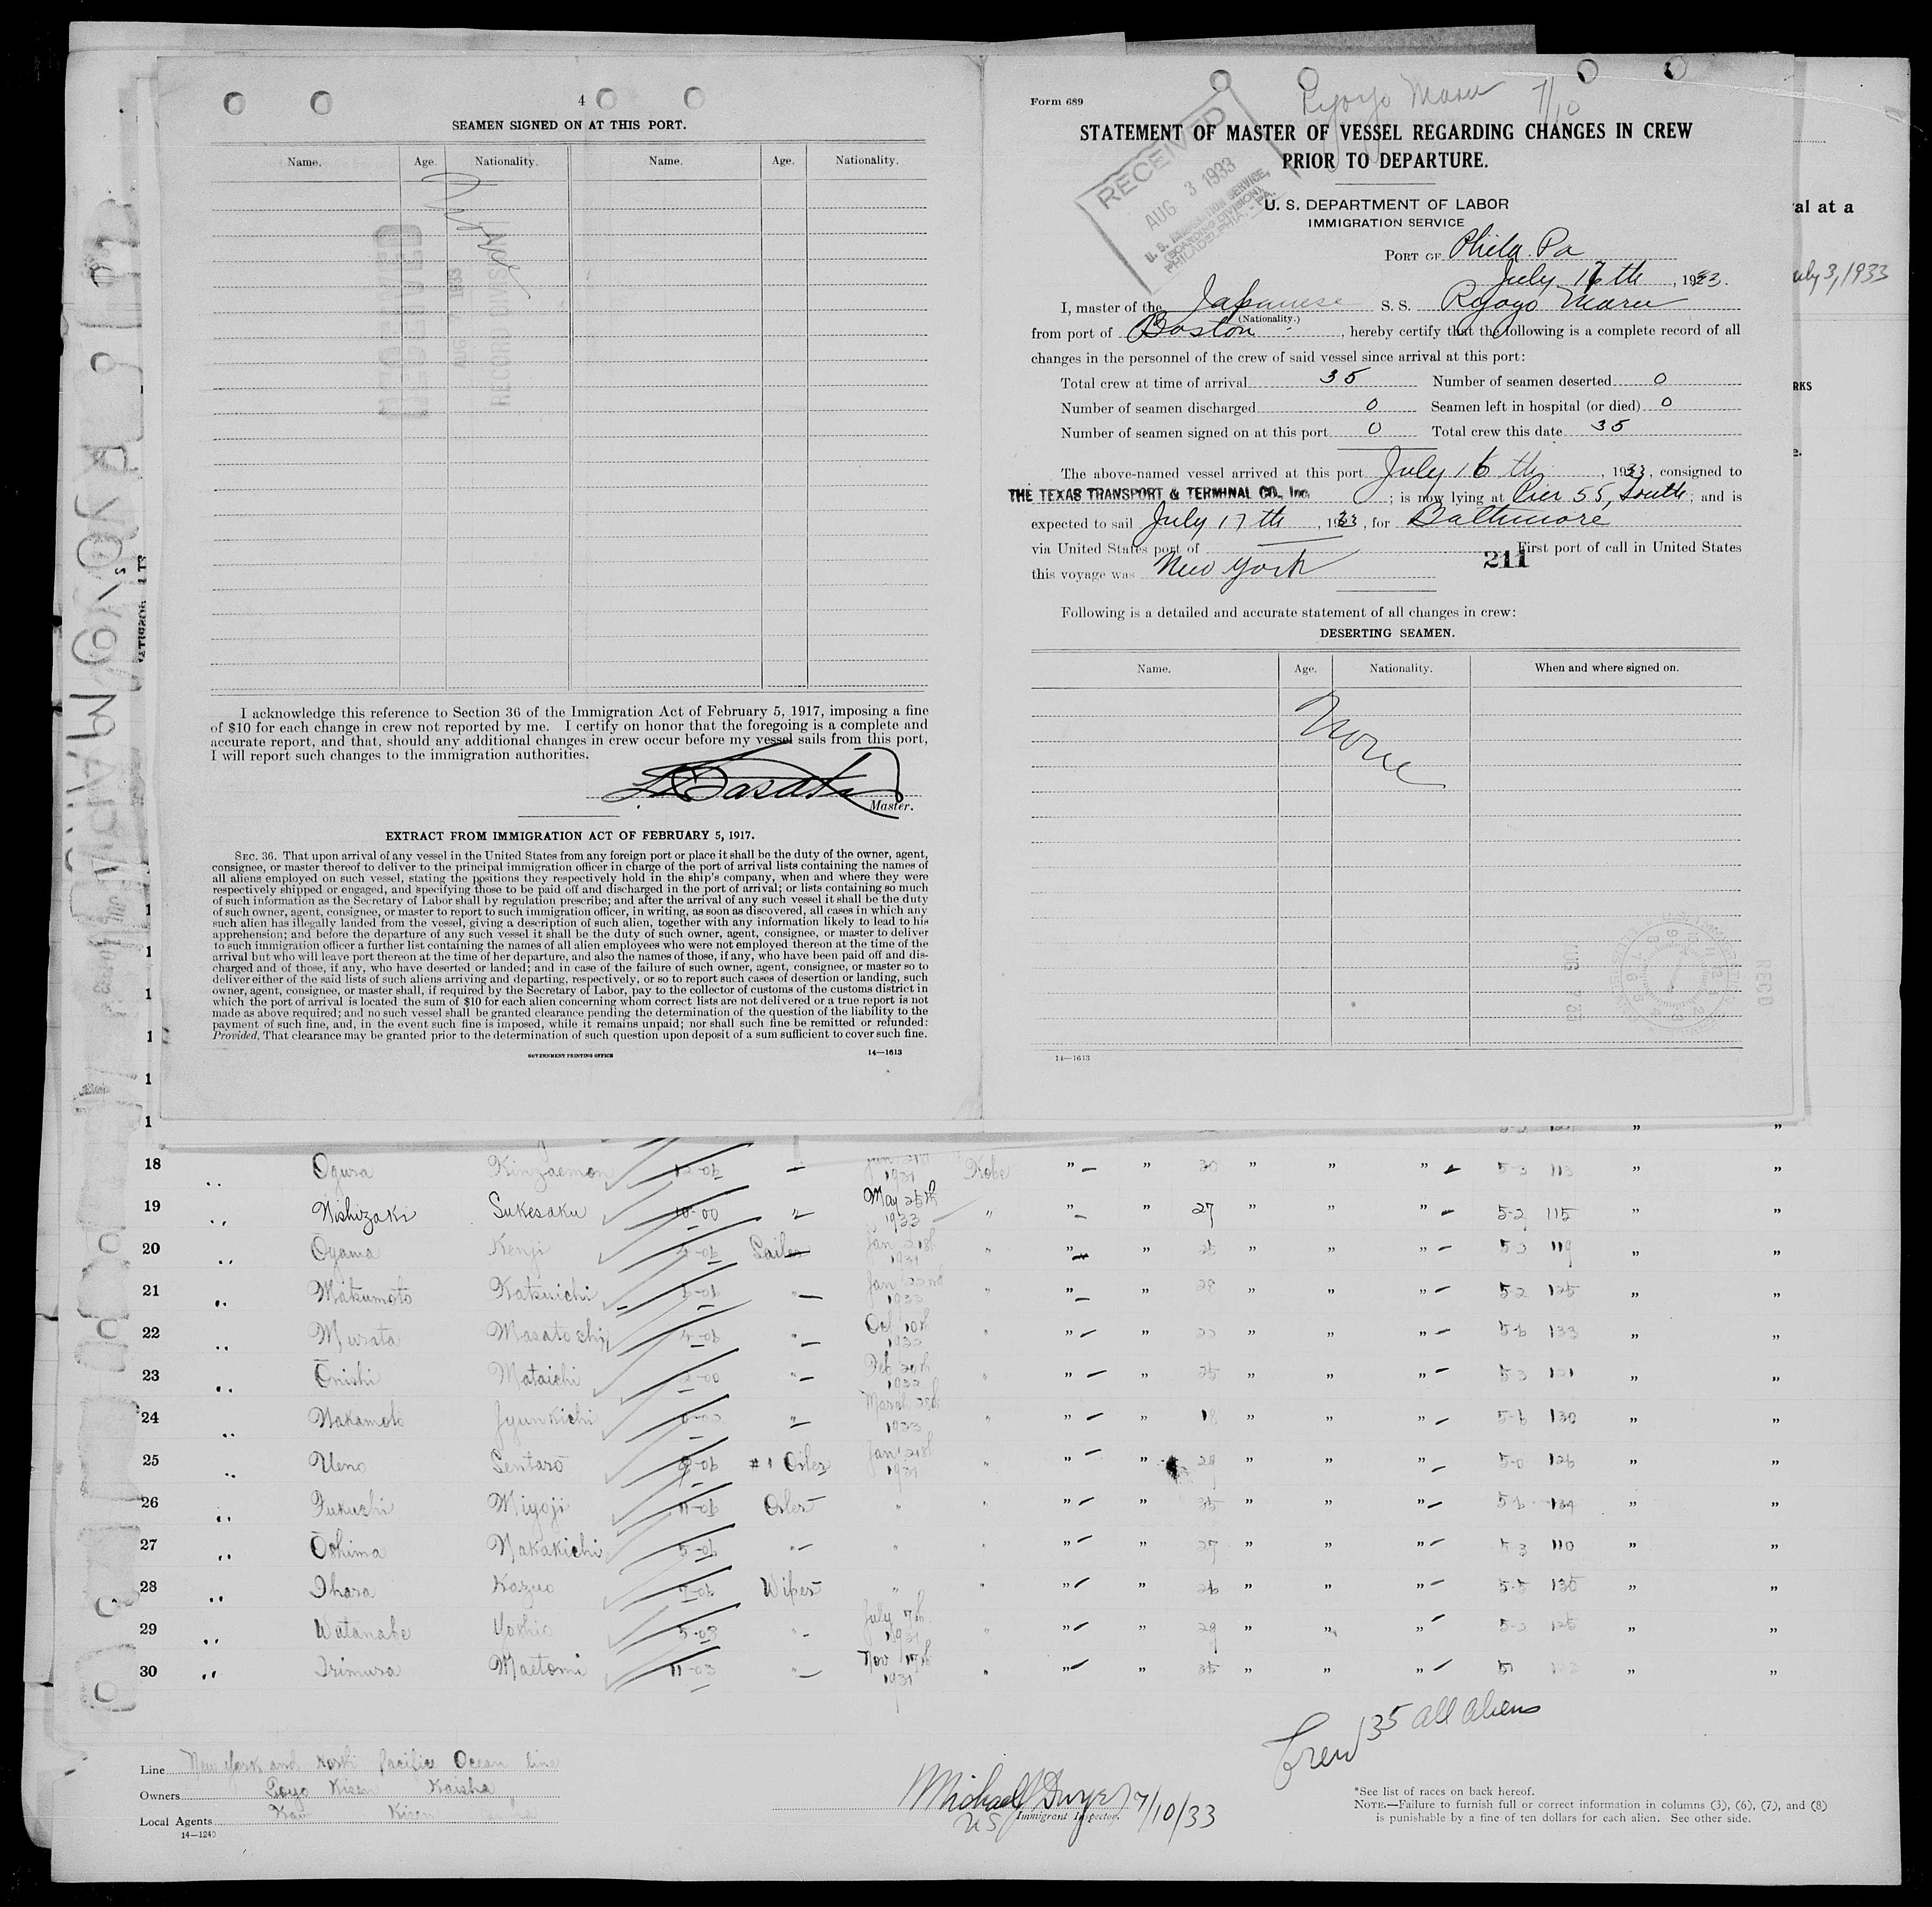 4
SEAMEN SIGNED ON AT THIS PORT.
Name. Age. Nationality. Name. Age. Nationality.
None
I acknowledge this reference to Section 36 of the Immigration Act of February 5, 1917, imposing a fine
of $10 for each change in crew not reported by me. I certify on honor that the foregoing is a complete and
accurate report, and that, should any additional changes in crew occur before my vessel sails from this port,
I will report such changes to the immigration authorities.
Master.
EXTRACT FROM IMMIGRATION ACT OF FEBRUARY 5, 1917.
SEC. 36. That upon arrival of any vessel in the United States from any foreign port or place it shall be the duty of the owner, agent,
consignee, or master thereof to deliver to the principal immigration officer in charge of the port of arrival lists containing the names of
all aliens employed on such vessel, stating the positions they respectively hold in the ship's company, when and where they were
respectively shipped or engaged, and specifying those to be paid off and discharged in the port of arrival; or lists containing so much
of such information as the Secretary of Labor shall by regulation prescribe; and after the arrival of any such vessel it shall be the duty
of such owner, agent, consignee, or master to report to such immigration officer, in writing, as soon as discovered, all cases in which any
such alien has illegally landed from the vessel, giving a description of such alien, together with any information likely to lead to his
apprehension; and before the departure of any such vessel it shall be the duty of such owner, agent, consignee, or master to deliver
to such immigration officer a further list containing the names of all alien employees who were not employed thereon at the time of the
arrival but who will leave port thereon at the time of her departure, and also the names of those, if any, who have been paid off and dis-
charged and of those, if any, who have deserted or landed; and in case of the failure of such owner, agent, consignee, or master so to
deliver either of the said lists of such aliens arriving and departing, respectively, or so to report such cases of desertion or landing, such
owner, agent, consignee, or master shall, if required by the Secretary of Labor, pay to the collector of customs of the customs district in
which the port of arrival is located the sum of $10 for each alien concerning whom correct lists are not delivered or a true report is not
made as above required; and no such vessel shall be granted clearance pending the determination of the question of the liability to the
payment of such fine, and, in the event such fine is imposed, while it remains unpaid; nor shall such fine be remitted or refunded:
Provided, That clearance may be granted prior to the determination of such question upon deposit of a sum sufficient to cover such fine.
GOVERNMENT PRINTING OFFICE 14—1613
Form 689
Ryoyo Maru 7/10
STATEMENT OF MASTER OF VESSEL REGARDING CHANGES IN CREW
PRIOR TO DEPARTURE.
RECEIVED
AUG 3 1933
U. S. IMMIGRATION SERVICE,
(BOARDING DIVISION)
PHILADELPHIA, - PA.
U. S. DEPARTMENT OF LABOR
IMMIGRATION SERVICE
PORT OF Phila. Pa
July 17th, 1933.
I, master of the Japanese S. S. Ryoyo Maru
(Nationality.)
from port of Boston, hereby certify that the following is a complete record of all
changes in the personnel of the crew of said vessel since arrival at this port:
Total crew at time of arrival 35 Number of seamen deserted 0
Number of seamen discharged 0 Seamen left in hospital (or died) 0
Number of seamen signed on at this port 0 Total crew this date 35
The above-named vessel arrived at this port July 16 th, 1933, consigned to
THE TEXAS TRANSPORT & TERMINAL CO., Inc. ; is now lying at Pier 55, South; and is
expected to sail July 17th, 1933, for Baltimore
via United States port of — First port of call in United States
211
this voyage was New York
Following is a detailed and accurate statement of all changes in crew:
DESERTING SEAMEN.
Name. Age. Nationality. When and where signed on.
None
14—1613
al at a
uly 3, 1933
RKS
18 Ogura Kinzaemon Kobe " " 30 " " " 5-3 113 " "
19 Nishizaki Sukesaku 10-00 " May 25th 1933 " " " 27 " " " 5-2 115 " "
20 Oyama Kenji Sailor " " " " " " 119 " "
21 Matsumoto Katsuichi " Jan 22nd 1933 " " " 28 " " " 5-2 125 " "
22 Murata Masatoshi " Oct 10th " " " " " " 5-6 133 " "
23 Ōnishi Mataichi " Feb 20th " " " 25 " " " 5-3 121 " "
24 Nakamoto Jyunkichi " March 1933 " " " 18 " " " 5-6 130 " "
25 Ueno Sentaro #1 Oiler Jan 21st 1931 " " " 29 " " " 5-0 126 " "
26 Fukushi Miyoji 11-06 Oiler " " " " 35 " " " " "
27 Ōshima Nakakichi 5-06 " " " " " 27 " " " 5-3 110 " "
28 Ihara Kazuo Wiper " " " " 26 " " " 5-5 135 " "
29 Watanabe Yoshio 5-03 " July 7th 1931 " " " 29 " " " 125 " "
30 Irimura Maetomi 11-03 " Nov 17th 1931 " " " 35 " " " " "
Crew 35 all aliens
Line New York and North Pacific Ocean line
Owners Toyo Kisen Kaisha
Local Agents Kisen
14-1240
Michael J Dwyer 7/10/33
US Immigrant Inspector.
*See list of races on back hereof.
NOTE.—Failure to furnish full or correct information in columns (3), (6), (7), and (8)
is punishable by a fine of ten dollars for each alien. See other side.